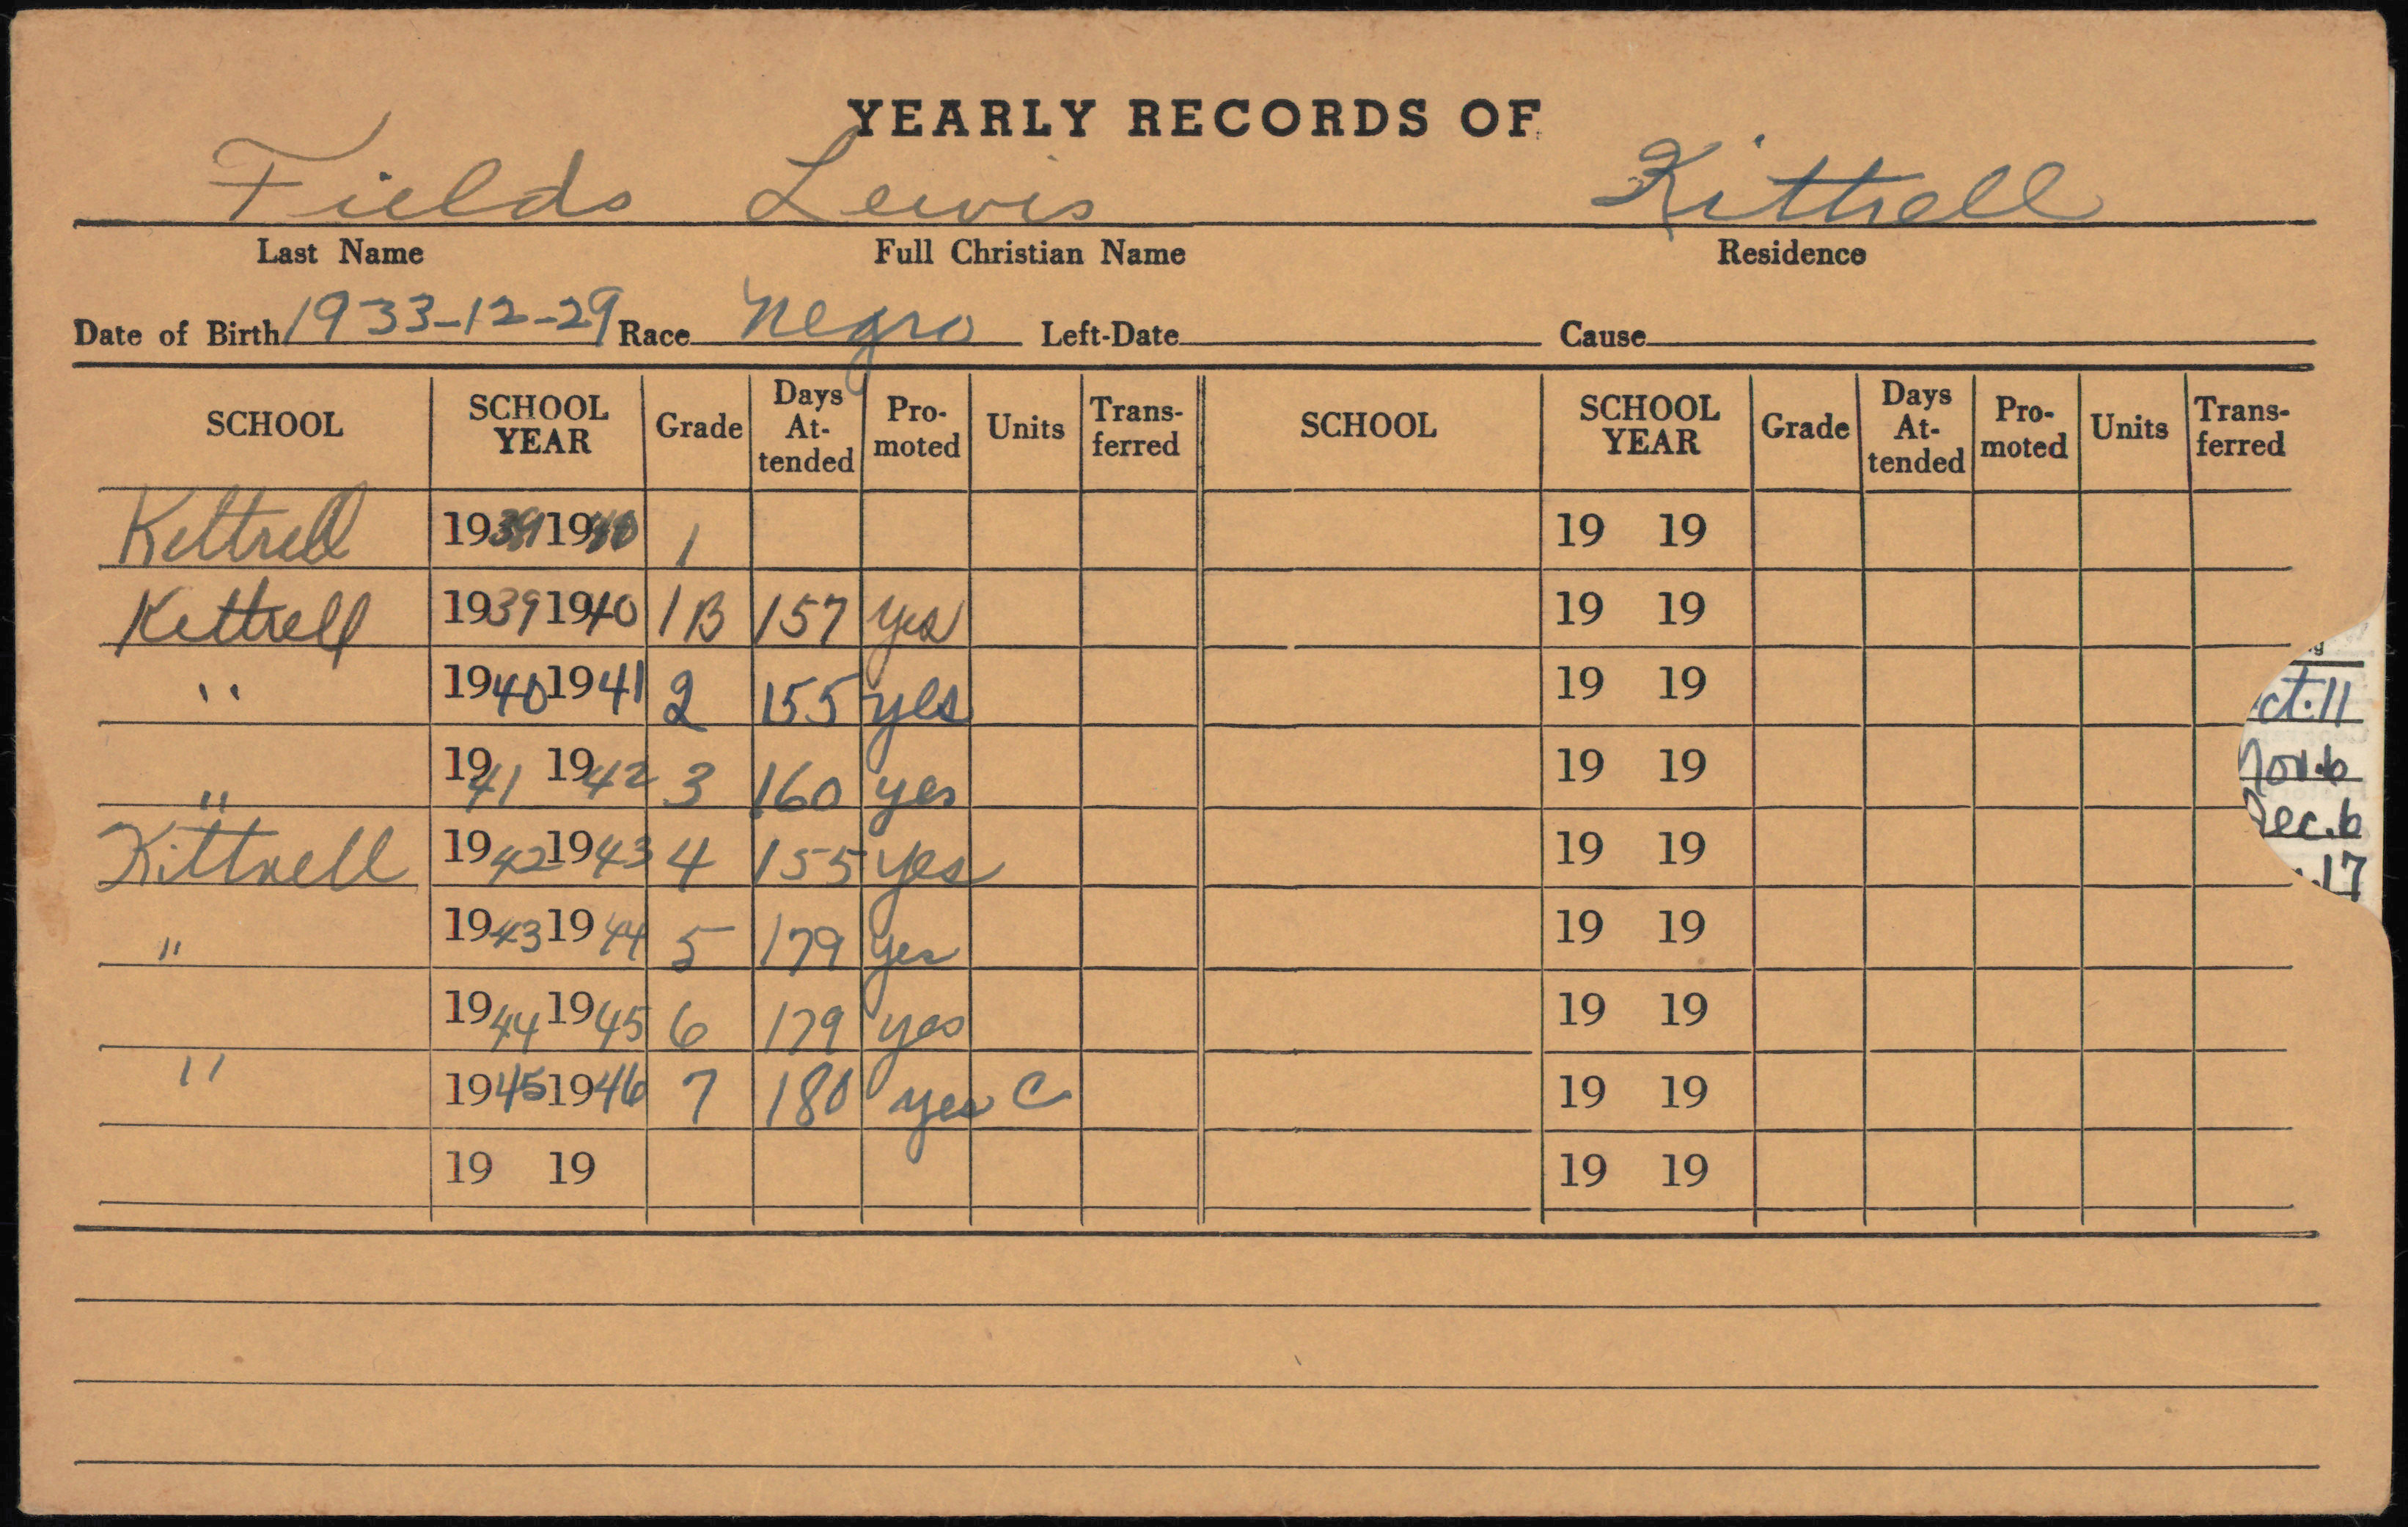 YEARLY RECORDS OF
Fields Lewis Kittrell
Last Name Full Christian Name Residence
Date of Birth 1933-12-29 Race Negro Left-Date Cause
SCHOOL SCHOOL YEAR Grade Days At-tended Pro-moted Units Trans-ferred SCHOOL SCHOOL YEAR Grade Days At-tended Pro-moted Units Trans-ferred
Kittrell 1939 1940 1 19 19
Kittrell 1939 1940 1B 157 yes 19 19
" 1940 1941 2 155 yes 19 19
" 1941 1942 3 160 yes 19 19
Kittrell 1942 1943 4 155 yes 19 19
" 1943 1944 5 179 yes 19 19
1944 1945 6 179 yes 19 19
" 1945 1946 7 180 yes C 19 19
19 19 19 19
ct. 11
Nov. 6
Dec. 6
17